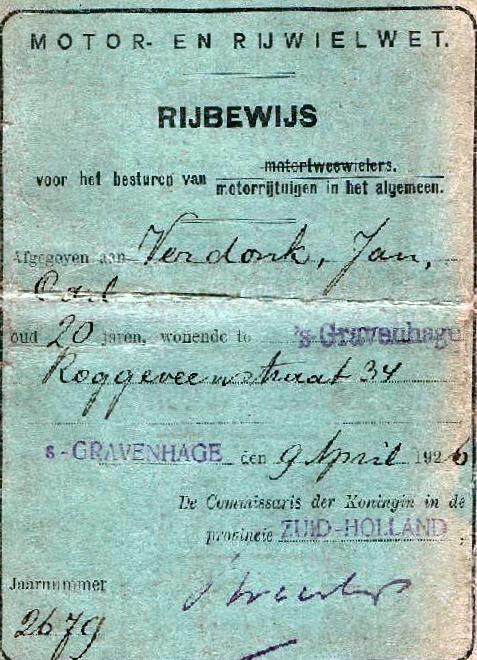 MOTOR- EN RIJWIELWET.
RIJBEWIJS
voor het besturen van motortweewielers.
motorrijtuigen in het algemeen.
Afgegeven aan Verdonk, Jan,
Carl
oud 20 jaren, wonende te 's-Gravenhage
Roggeveenstraat 34
s-GRAVENHAGE den 9 April 1926
De Commissaris der Koningin in de
provincie ZUID-HOLLAND.
Jaarnummer
2679